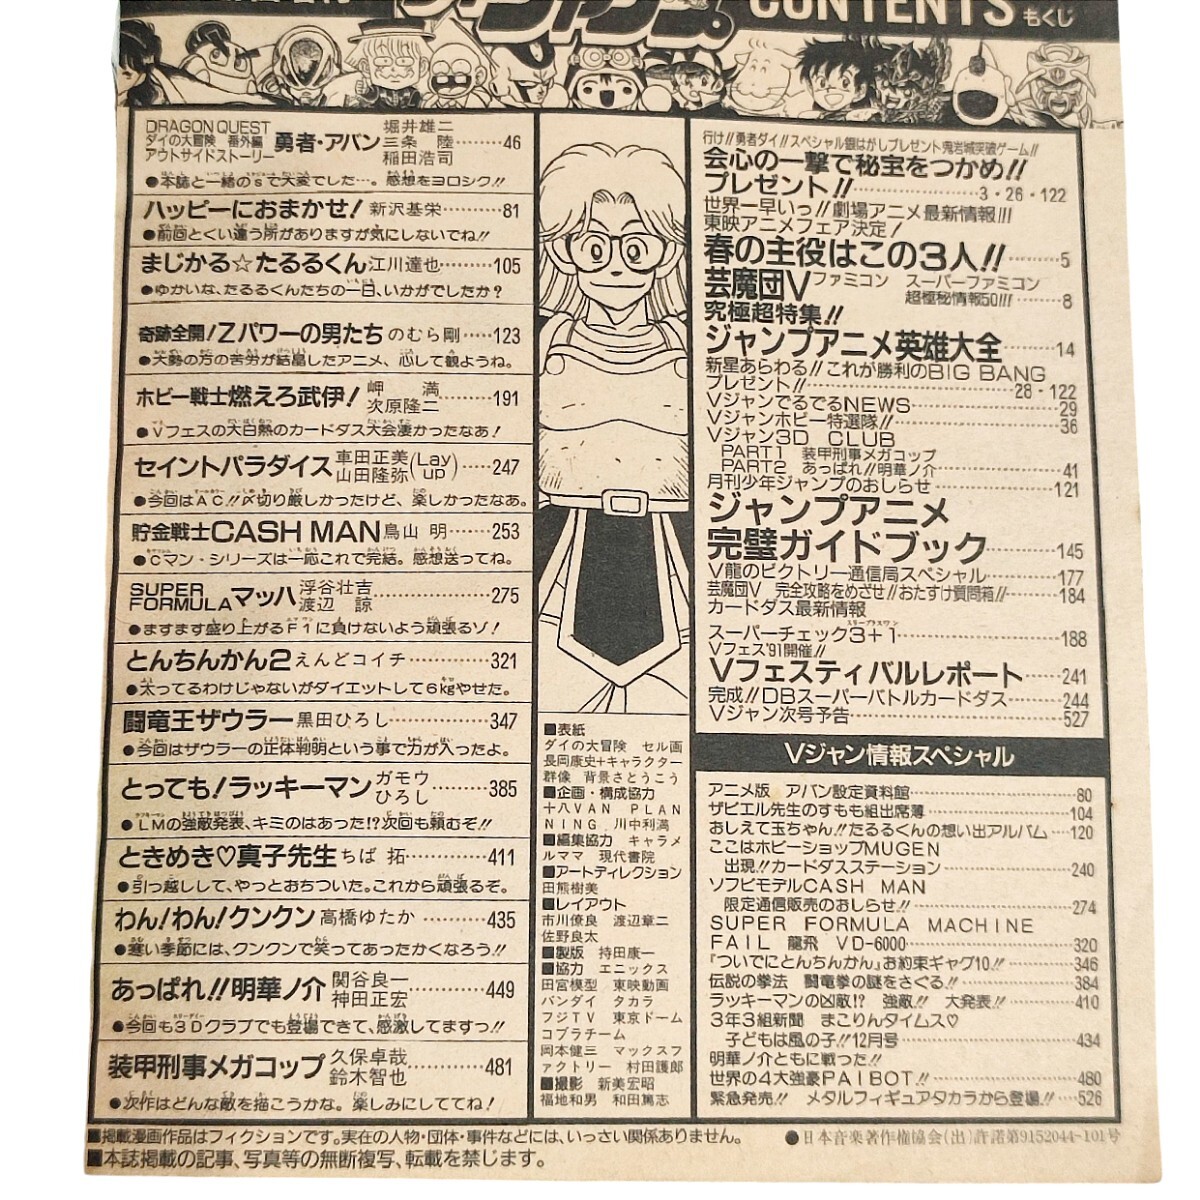 CONTENTS もくじ
DRAGON QUEST ダイの大冒険 番外編 アウトサイドストーリー 勇者・アバン 堀井雄二 三条 陸 稲田浩司 46
●本誌と一緒のsで大変でした…。感想をヨロシク!!
ハッピーにおまかせ! 新沢基栄 81
●前回とくい違う所がありますが気にしないでね!!
まじかる☆たるるくん 江川達也 105
●ゆかいな、たるるくんたちの一日、いかがでしたか?
奇跡全開!Zパワーの男たち のむら剛 123
●大勢の方の苦労が結晶したアニメ、心して観ようね。
ホビー戦士燃えろ武伊! 岬 満 次原隆二 191
●Vフェスの大白熱のカードダス大会凄かったなあ!
セイントパラダイス 車田正美 山田隆弥(Lay up) 247
●今回はAC!!〆切り厳しかったけど、楽しかったなあ。
貯金戦士CASH MAN 鳥山 明 253
●Cマン・シリーズは一応これで完結。感想送ってね。
SUPER FORMULA マッハ 浮谷壮吉 渡辺 諒 275
●ますます盛り上がるF1に負けないよう頑張るゾ!
とんちんかん2 えんどコイチ 321
●太ってるわけじゃないがダイエットして6kgやせた。
闘竜王ザウラー 黒田ひろし 347
●今回はザウラーの正体判明という事で力が入ったよ。
とっても!ラッキーマン ガモウひろし 385
●LMの強敵発表、キミのはあった!?次回も頼むぞ!!
ときめき♡真子先生 ちば 拓 411
●引っ越しして、やっとおちついた。これから頑張るぞ。
わん!わん!クンクン 高橋ゆたか 435
●寒い季節には、クンクンで笑ってあったかくなろう!!
あっぱれ!!明華ノ介 関谷良一 神田正宏 449
●今回も3Dクラブでも登場できて、感激してますっ!!
装甲刑事メガコップ 久保卓哉 鈴木智也 481
●次作はどんな敵を描こうかな。楽しみにしててね!
■表紙
ダイの大冒険 セル画
長岡康史+キャラクター
群像 背景さとうこう
■企画・構成協力
十八VAN PLAN
NING 川中利満
■編集協力 キャラメ
ルママ 現代書院
■アートディレクション
田熊樹美
■レイアウト
市川僚良 渡辺章二
佐野良太
■製版 持田康一
■協力 エニックス
田宮模型 東映動画
バンダイ タカラ
フジTV 東京ドーム
コブラチーム
岡本健三 マックスフ
ァクトリー 村田護郎
■撮影 新美宏昭
福地和男 和田篤志
行け!!勇者ダイ!!スペシャル銀はがしプレゼント鬼岩城突破ゲーム!!
会心の一撃で秘宝をつかめ!!
プレゼント!! 3・26・122
世界一早いっ!!劇場アニメ最新情報!!!
東映アニメフェア決定!
春の主役はこの3人!! 5
芸魔団V ファミコン スーパーファミコン 超極秘情報50!!! 8
究極超特集!!
ジャンプアニメ英雄大全 14
新星あらわる!!これが勝利のBIG BANG
プレゼント!! 28・122
VジャンでるでるNEWS 29
Vジャンホビー特選隊!! 36
Vジャン3D CLUB
PART1 装甲刑事メガコップ
PART2 あっぱれ!!明華ノ介 41
月刊少年ジャンプのおしらせ 121
ジャンプアニメ
完璧ガイドブック 145
V龍のビクトリー通信局スペシャル 177
芸魔団V 完全攻略をめざせ!!おたすけ質問箱!! 184
カードダス最新情報
スーパーチェック3+1 188
Vフェス'91開催!!
Vフェスティバルレポート 241
完成!!DBスーパーバトルカードダス 244
Vジャン次号予告 527
Vジャン情報スペシャル
アニメ版 アバン設定資料館 80
ザビエル先生のすもも組出席簿 104
おしえて玉ちゃん!!たるるくんの想い出アルバム 120
ここはホビーショップMUGEN
出現!!カードダスステーション 240
ソフビモデルCASH MAN
限定通信販売のおしらせ!! 274
SUPER FORMULA MACHINE
FAIL 龍飛 VD-6000 320
『ついでにとんちんかん』お約束ギャグ10!! 346
伝説の拳法 闘竜拳の謎をさぐる!! 384
ラッキーマンの凶敵!? 強敵!! 大発表!! 410
3年3組新聞 まこりんタイムス♡
子どもは風の子!!12月号 434
明華ノ介ともに戦った!!
世界の4大強豪PAIBOT!! 480
緊急発売!! メタルフィギュアタカラから登場!! 526
■掲載漫画作品はフィクションです。実在の人物・団体・事件などには、いっさい関係ありません。
●日本音楽著作権協会(出)許諾第9152044-101号
■本誌掲載の記事、写真等の無断複写、転載を禁じます。